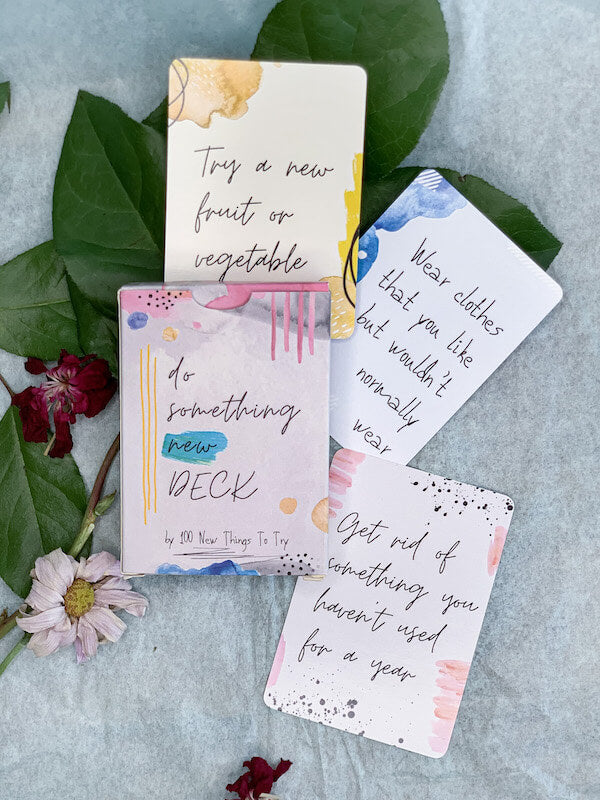 Try a new
fruit or
vegetable
Wear clothes
that you like
but wouldn't
normally
wear
do
something
new
DECK
by 100 New Things To Try
Get rid of
something you
haven't used
for a year